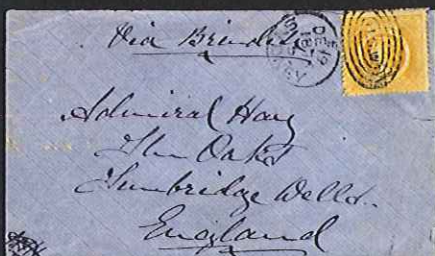 Via Brindisi
DE 19
Admiral Hay
The Oaks
Tunbridge Wells.
England